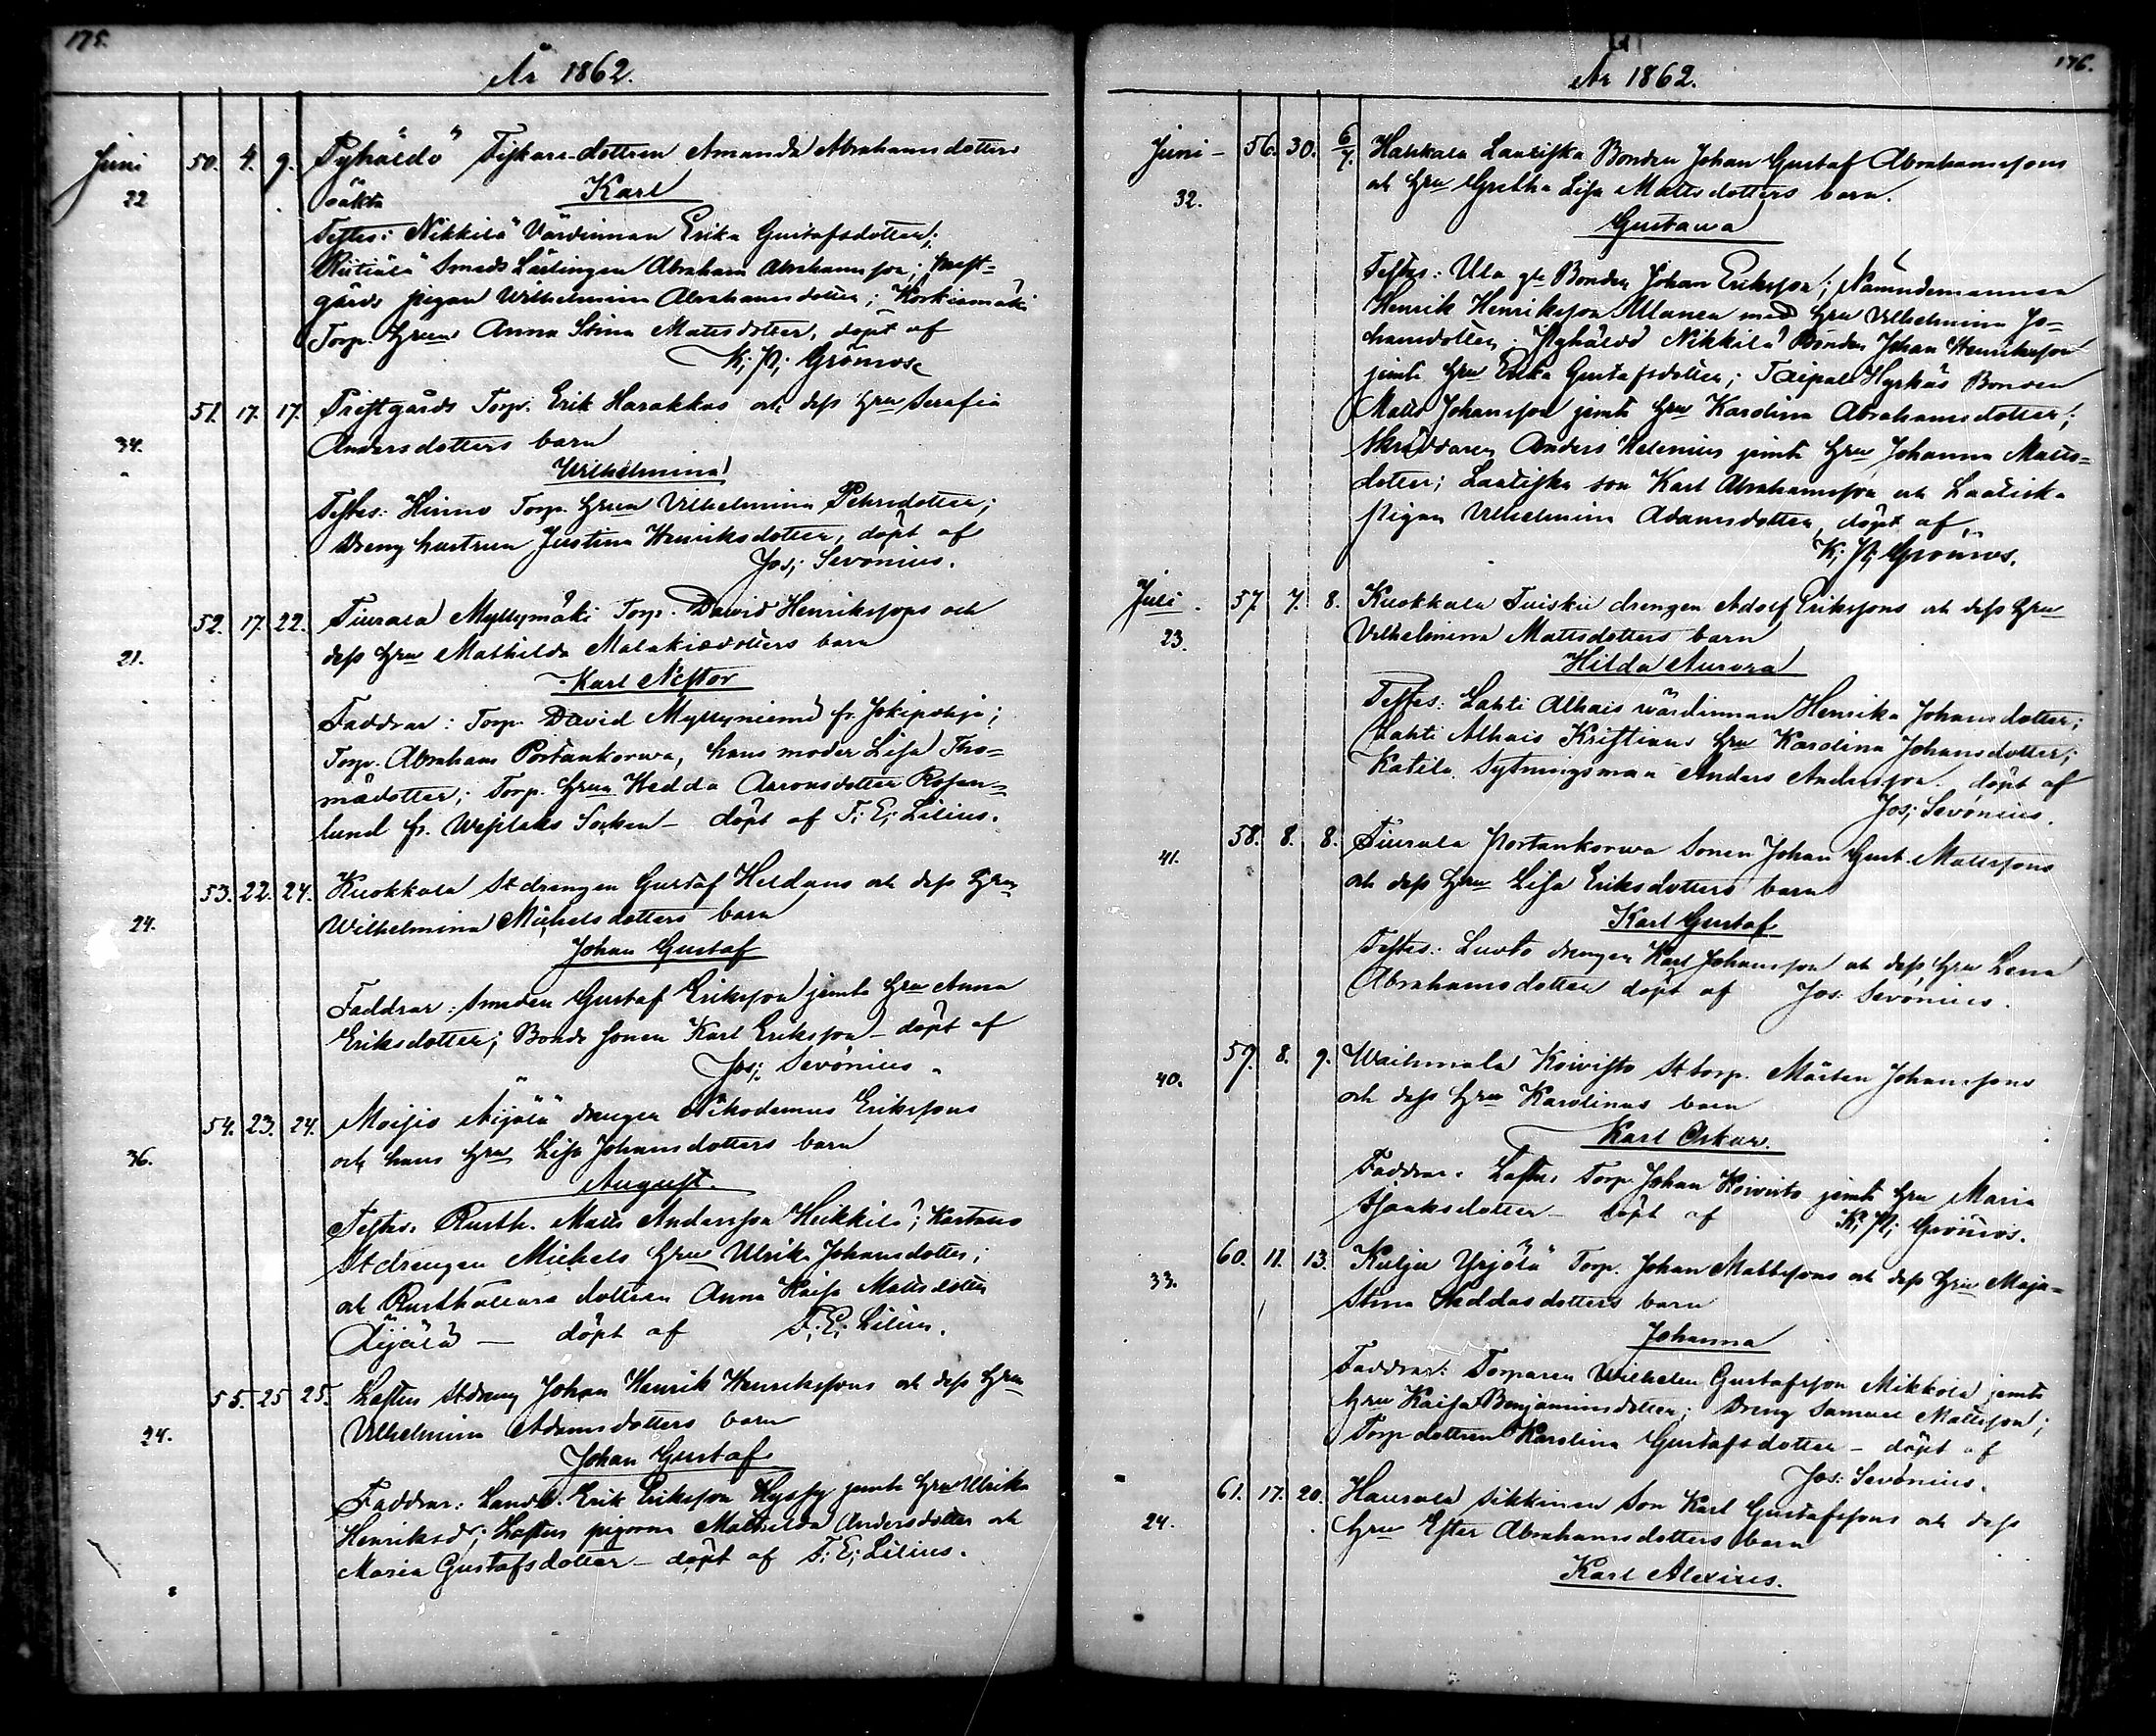 175.
År 1862.
Juni 50. 4. 9. Pyhäldö Fiskare-dottren Amanda Abrahamsdotters
22 oäkta Karl
Testes: Nikkilä Värdinnan Erika Gustafsdotter;
Smeds Lärlingen Abraham Abrahamsson; Prest-
gårds pigan Wilhelmina Abrahamsdotter; Korkiamäki
Torp. Hrun Anna Stina Matsdotter, döpt af
K; P; Grönros
51. 17. 17. Prestgårds Torp. Erik Harakkas och dess Hru Serafia
34. Andersdotters barn
Wilhelmina
Testes: Hinno Torp. Hrun Vilhelmina Pehrsdotter;
Dreng hustrun Justina Henriksdotter, döpt af
Jos; Sevonius.
52. 17. 22. Tiurala Myllymäki Torp. David Henrikssons och
21. dess Hru Mathilda Malakiædotters barn
Karl Nestor
Faddrar: Torp. David Myllyniemi fr. Jokipohja;
Torp. Abraham Portankorwa, hans moder Lisa Tho-
mädotter; Torp. Hrun Hedda Aaronsdotter Rosen-
lund fr. Wesilaks Socken - döpt af F; E; Lilius.
53. 22. 24. Kuokkala Stdrengen Gustaf Heldans och dess Hru
24. Wilhelmina Michelsdotters barn
Johan Gustaf
Faddrar: Smeden Gustaf Eriksson jemte Hru Anna
Eriksdotter; Bonde sonen Karl Eriksson - döpt af
Jos; Sevonius.
54. 23. 24. Moisio Äijälä drengen Nikodemus Erikssons
36. och hans Hru Lisa Johansdotters barn
August.
Testes. Rusth. Matts Andersson Heikkilä; Kartano
Stdrengen Michels Hru Ulrika Johansdotter;
och Rusthållare dottren Anna Kaisa Mattsdotter
Äijälä - döpt af F; E; Lilius.
55. 25 25. Loftus Stdreng Johan Henrik Henrikssons och dess Hru
24. Vilhelmina Adamsdotters barn
Johan Gustaf
Faddrar: Landb. Erik Eriksson Hyssy jemte Hru Ulrika
Henriksdr; Loftus pigorna Mathilda Andersdotter och
Maria Gustafsdotter - döpt af F; E; Lilius.
176.
År 1862.
Juni - 56. 30. 6/7. Hakkala Lautiska Bonden Johan Gustaf Abrahamssons
32. och Hru Gretha Lisa Mattsdotters barn.
Gustawa
Testes: Ula gle Bonden Johan Eriksson; Nämndemannen
Henrik Henriksson Ullanen med Hru Vilhelmina Jo-
hansdotter; Pyhäldö Nikkilä Bonden Johan Henriksson
jemte Hru Erika Gustafsdotter; Taipale Hyrkäs Bonden
Matts Johansson jemte Hru Karolina Abrahamsdotter;
Skräddaren Anders Helenius jemte Hru Johanna Matts-
dotter; Lautiska son Karl Abrahamsson och Lautiska
Pigan Vilhelmina Adamsdotter, döpt af
K; P; Grönros.
Juli. 57. 7. 8. Kuokkala Tuisku drengen Adolf Erikssons och dess Hru
23. Vilhelmina Mattsdotters barn
Hilda Aurora
Testes: Lahti Alhais wärdinnan Henrika Johansdotter;
Lahti Alhais Kristians Hru Karolina Johansdotter;
Katila Sytningsman Anders Andersson. döpt af
Jos; Sevonius.
58. 8. 8. Tiurala Portankorwa Sonen Johan Gust. Mattssons
41. och dess Hru Lisa Eriksdotters barn
Karl Gustaf
Testes: Luoto drengen Karl Johansson och dess Hru Lena
Abrahamsdotter döpt af Jos: Sevonius.
59. 8. 9. Waihmala Koivisto St torp. Mårten Johanssons
40. och dess Hru Karolinas barn
Karl Oskar.
Faddrar. Loftus Torp. Johan Koivisto jemte Hru Maria
Isaaksdotter - döpt af K; P; Grönros.
60. 11. 13. Kulju Yrjölä Torp. Johan Mattssons och dess Hru Maja-
33. Stina Heddasdotters barn
Johanna
Faddrar: Torparen Wilhelm Gustafsson Mikkola jemte
Hru Kaisa Benjaminsdotter; Dreng Samuel Mattsson;
Torp dottren Karolina Gustafsdotter - döpt af
Jos: Sevonius.
61. 17. 20. Haurala Sikkinen Son Karl Gustafssons och dess
24. Hru Ester Abrahamsdotters barn
Karl Alexius.